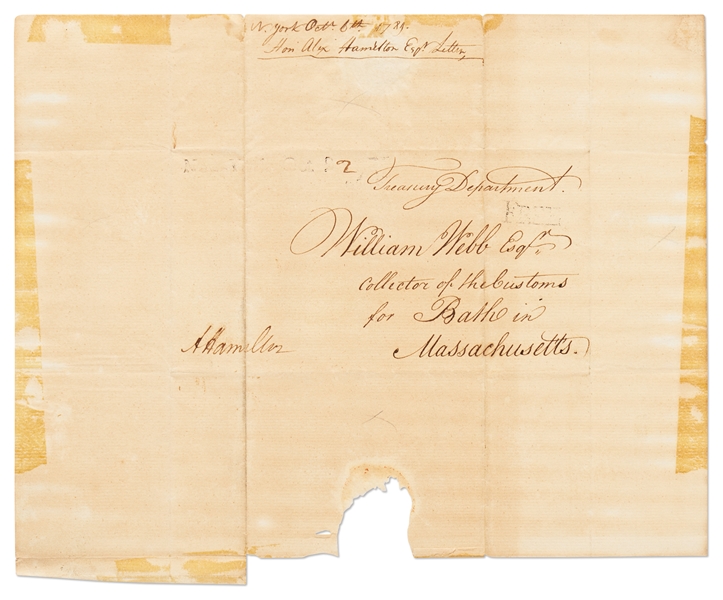 N. york Octr. 6th. 1789.
Honl Alexr Hamelton Esqr. Letter,
2
Treasury Department.
FREE
William Webb Esqr.
Collector of the Customs
for Bath in
A Hamilton
Massachusetts.